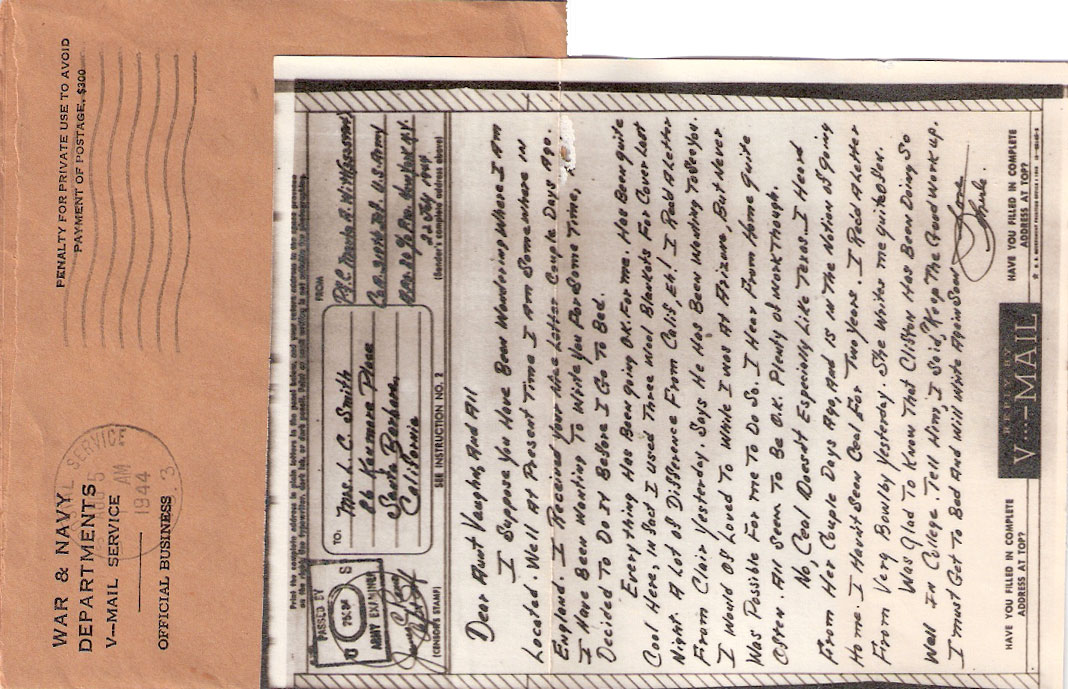 WAR & NAVY
DEPARTMENTS
V--MAIL SERVICE
OFFICIAL BUSINESS
PENALTY FOR PRIVATE USE TO AVOID
PAYMENT OF POSTAGE, $300
SERVICE
5
AM
1944
3
Print the complete address in plain letters in the panel below, and your return address in the space provided
PASSED BY
S
ARMY EXAMINER
(CENSOR'S STAMP)
TO:
Mrs. L. C. Smith
26 Kenmore Place
Santa Barbara,
California
SEE INSTRUCTION NO. 2
FROM
U.S. Army
New York N.Y.
22 July 1944
(Sender's complete address above)
Dear Aunt Vaughn, And All
I Suppose You Have Been Wondering Where I Am
Located. Well At Present Time I Am Somewhere In
England. I Received Your Letter Couple Days Ago.
I Have Been Wanting To Write You For Some Time,
Decided To Do It Before I Go To Bed.
Everything Has Been Going O.K. For me. Has Been Quite
Cool Here, In Fact I used Three Wool Blankets For Cover Last
Night. A Lot of Difference From Calif, Eh! I Rec'd A Letter
From Clair Yesterday Says He Has Been Wanting To See You.
I Would Of Loved To While I was At Arizona, But Never
Was Possible For me To Do So. I Hear From Home Quite
Often. All Seem To Be O.K. Plenty of Work Though.
No, Ceal Doesnt Especially Like Texas. I Heard
From Her Couple Days Ago, And is in The Notion of Going
Home. I Havint Seen Ceal For Two Years. I Rec'd A Letter
From Very Bowlby Yesterday. She Writes me quite Often.
Was Glad To Know That Clifton Has Been Doing So
Well In College Tell Him, I Said, "Keep The Good Work up.
I must Get To Bed And Will Write Again Soon
Love
HAVE YOU FILLED IN COMPLETE
ADDRESS AT TOP?
V--MAIL
HAVE YOU FILLED IN COMPLETE
ADDRESS AT TOP?